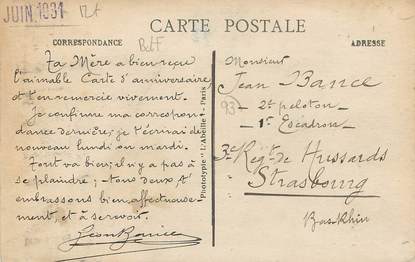 JUIN 1931
12f
CARTE POSTALE
CORRESPONDANCE
ADRESSE
Ta Mère a bien reçu
l'aimable Carte d'anniversaire
et t'en remercie vivement.
Je confirme ma correspon-
dance dernière; je t'écrirai de
nouveau lundi ou mardi.
Tout va bien, il n'y a pas à
se plaindre; tous deux, t'
embrassons bien affectueuse-
ment, et à se revoir.
Léon Bance
Phototypie "L'Abeille" - Paris
Monsieur
Jean Bance
93
- 2e peloton -
- 1er Escadron -
3e Regt de Hussards
Strasbourg
Bas-Rhin